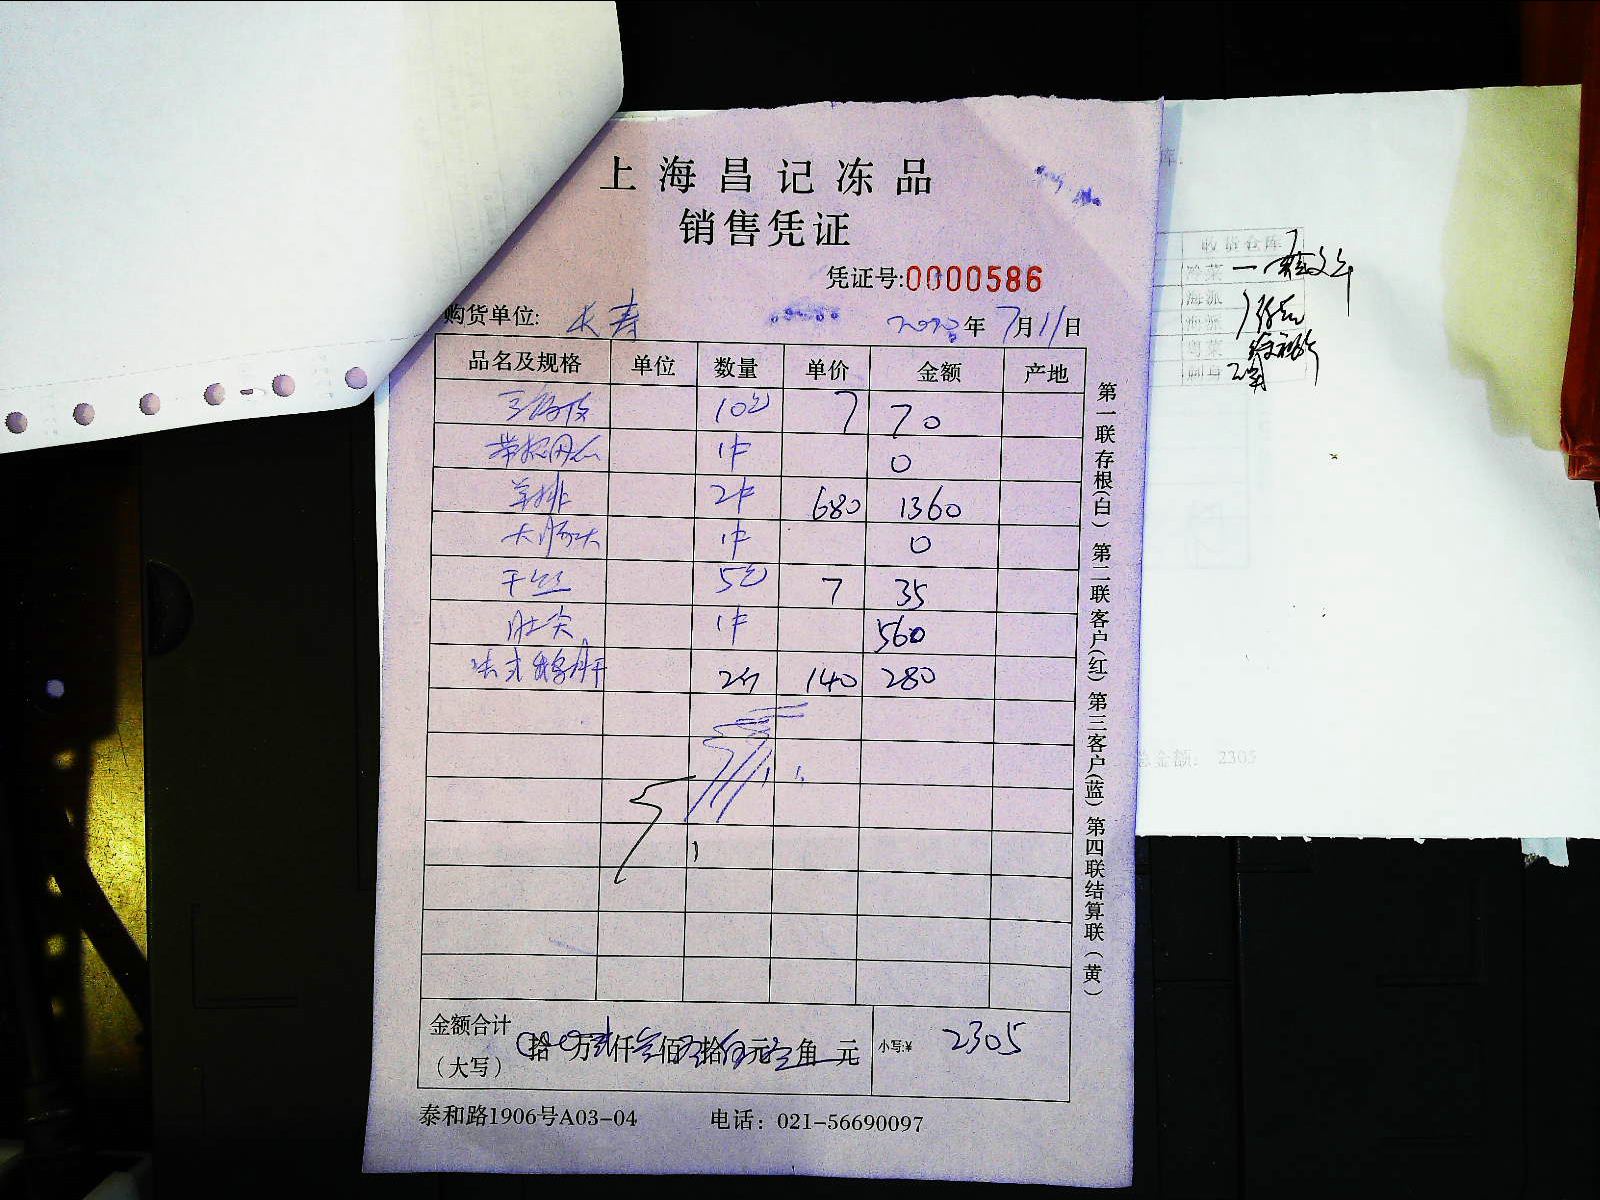 上海昌记冻品
销售凭证
凭证号:0000586
购货单位: 长寿 年7月11日
品名及规格 单位 数量 单价 金额 产地
10包 7 70
1件 0
羊排 2件 680 1360
大肠头 1件 0
干丝 5包 7 35
肚尖 1件 560
法式鹅肝 2个 140 280
金额合计
(大写) 拾 万贰仟叁佰零拾伍元 角 元 小写:¥ 2305
泰和路1906号A03-04 电话: 021-56690097
第一联存根(白) 第二联客户(红) 第三客户(蓝) 第四联结算联(黄)
收货仓库
粤菜
总金额: 2305